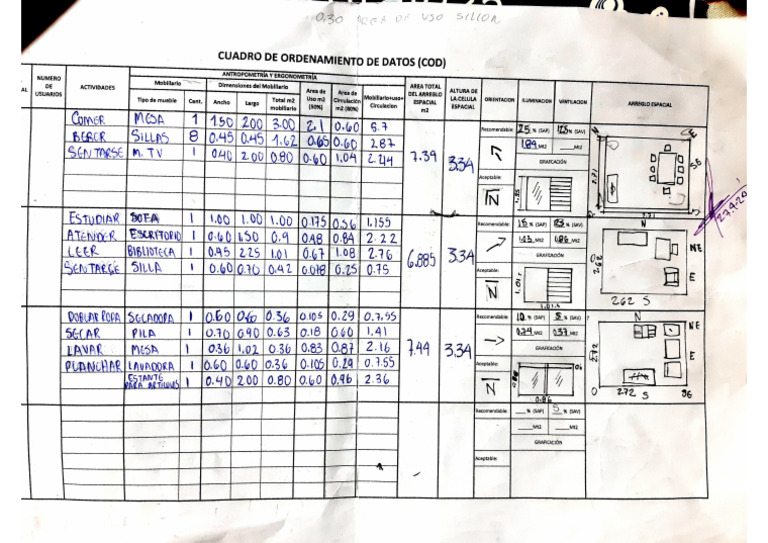 0.30 AREA DE USO SILLON
CUADRO DE ORDENAMIENTO DE DATOS (COD)
AL
NUMERO DE USUARIOS
ACTIVIDADES
ANTROPOMETRÍA Y ERGONOMETRÍA
Mobiliario
Dimensiones del Mobiliario
Tipo de mueble
Cant.
Ancho
Largo
Total m2 mobiliario
Area de Uso m2 (50%)
Area de Circulación m2 (80%)
Mobiliario+uso+ Circulacion
AREA TOTAL DEL ARREGLO ESPACIAL m2
ALTURA DE LA CELULA ESPACIAL
ORIENTACION
ILUMINACION
VENTILACION
ARREGLO ESPACIAL
COMER MESA 1 1.50 2.00 3.00 2.1 0.60 5.7
BEBER SILLAS 8 0.45 0.45 1.62 0.65 0.60 2.87
SENTARSE M. TV 1 0.40 2.00 0.80 0.60 1.04 2.44
7.39 3.34
Recomendable: 25 % (SAP) 12.5 % (SAV)
1.84 Mt2 Mt2
GRAFICACIÓN
Aceptable:
N
N E
SE
27.9.20
ESTUDIAR SOFA 1 1.00 1.00 1.00 0.175 0.56 1.155
ATENDER ESCRITORIO 1 0.60 1.50 0.9 0.48 0.84 2.22
LEER BIBLIOTECA 1 0.45 2.25 1.01 0.67 1.08 2.76
SENTARSE SILLA 1 0.60 0.70 0.42 0.078 0.25 0.75
6.885 3.34
Recomendable: 15 % (SAP) % (SAV)
1.03 Mt2 0.86 Mt2
GRAFICACIÓN
Aceptable:
N
N NE
O 2.62 E
2.62 S
DOBLAR ROPA SECADORA 1 0.60 0.60 0.36 0.105 0.29 0.7.55
SECAR PILA 1 0.70 0.90 0.63 0.18 0.60 1.41
LAVAR MESA 1 0.36 1.02 0.36 0.83 0.87 2.16
PLANCHAR LAVADORA 1 0.60 0.60 0.36 0.105 0.29 0.7.55
ESTANTE PARA ARTICULOS 1 0.40 2.00 0.80 0.60 0.96 2.36
7.44 3.34
Recomendable: 10 % (SAP) 5 % (SAV)
0.74 Mt2 0.37 Mt2
GRAFICACIÓN
Aceptable:
N
0.86
N NE
2.72 E
O 2.72 S SE
Recomendable: % (SAP) 5 % (SAV)
Mt2 Mt2
GRAFICACIÓN
Aceptable: